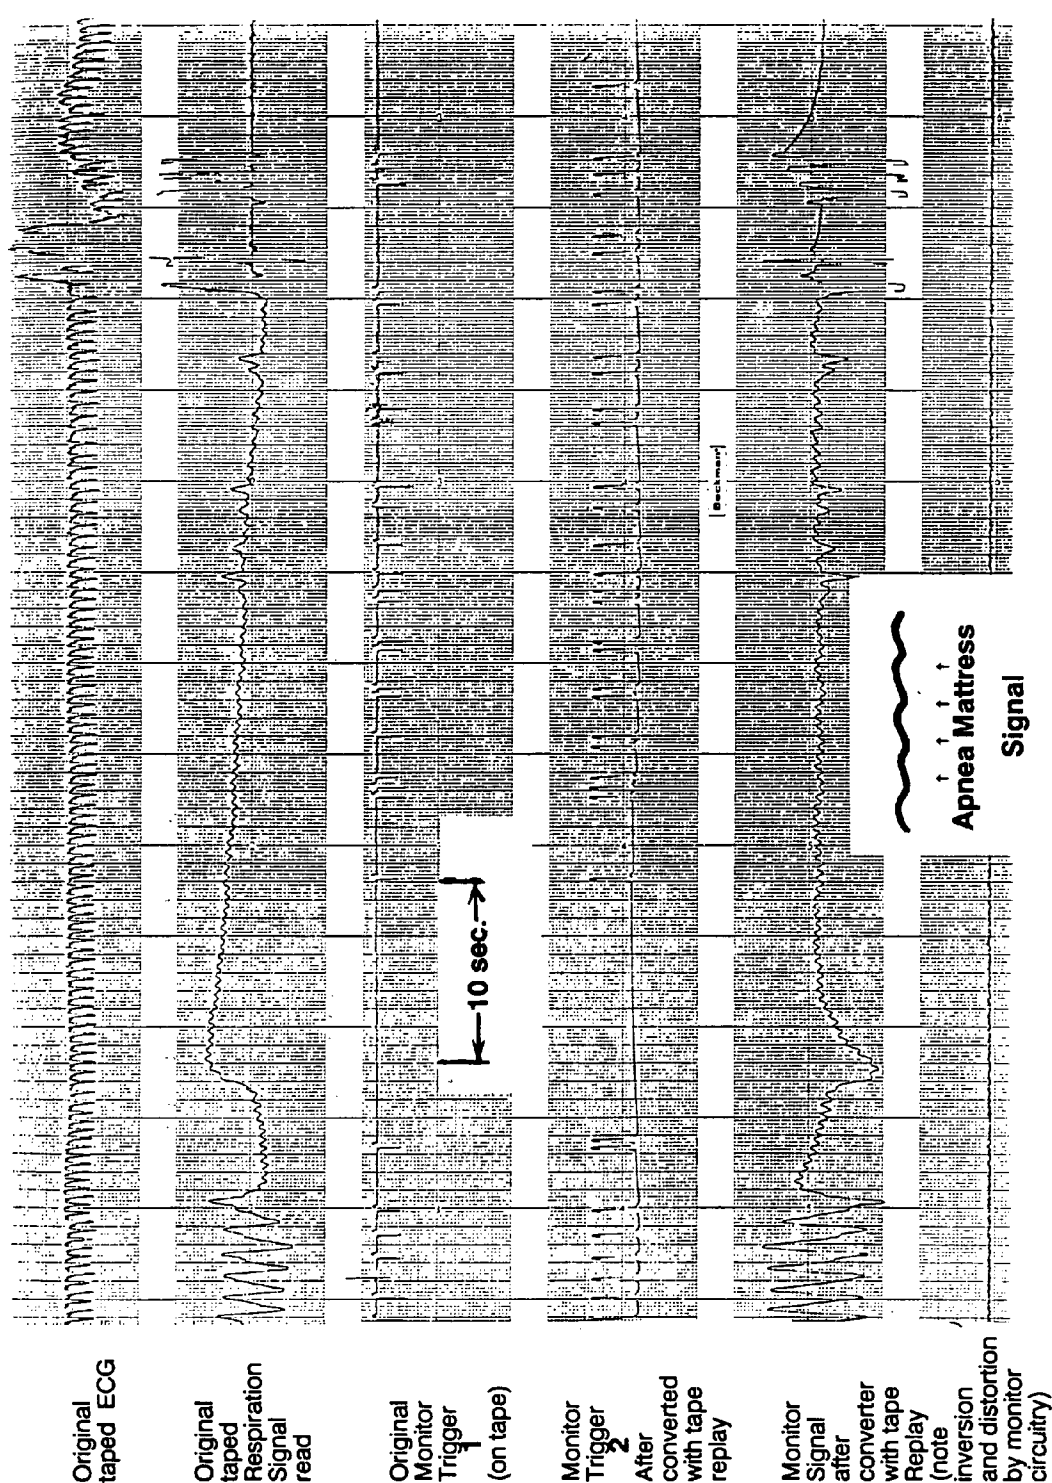 Original
taped ECG
Original
taped
Respiration
Signal
read
Original
Monitor
Trigger
1
(on tape)
Monitor
Trigger
2
After
converted
with tape
replay
Monitor
Signal
after
converter
with tape
Replay
(note
inversion
and distortion
by monitor
circuitry)
10 sec.
Beckman
Apnea Mattress
Signal